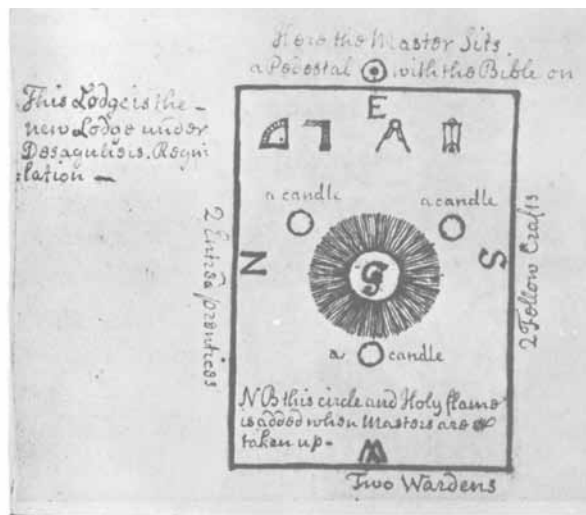 Here the Master Sits
a Pedestal with the Bible on
This Lodge is the
new Lodge under
Desagulieis. Regu
lation
E
a candle
a candle
2 Entred prentises
N
G
S
2 Fellow Crafts
a candle
NB this circle and Holy flame
is added when Masters are
taken up-
W
Two Wardens